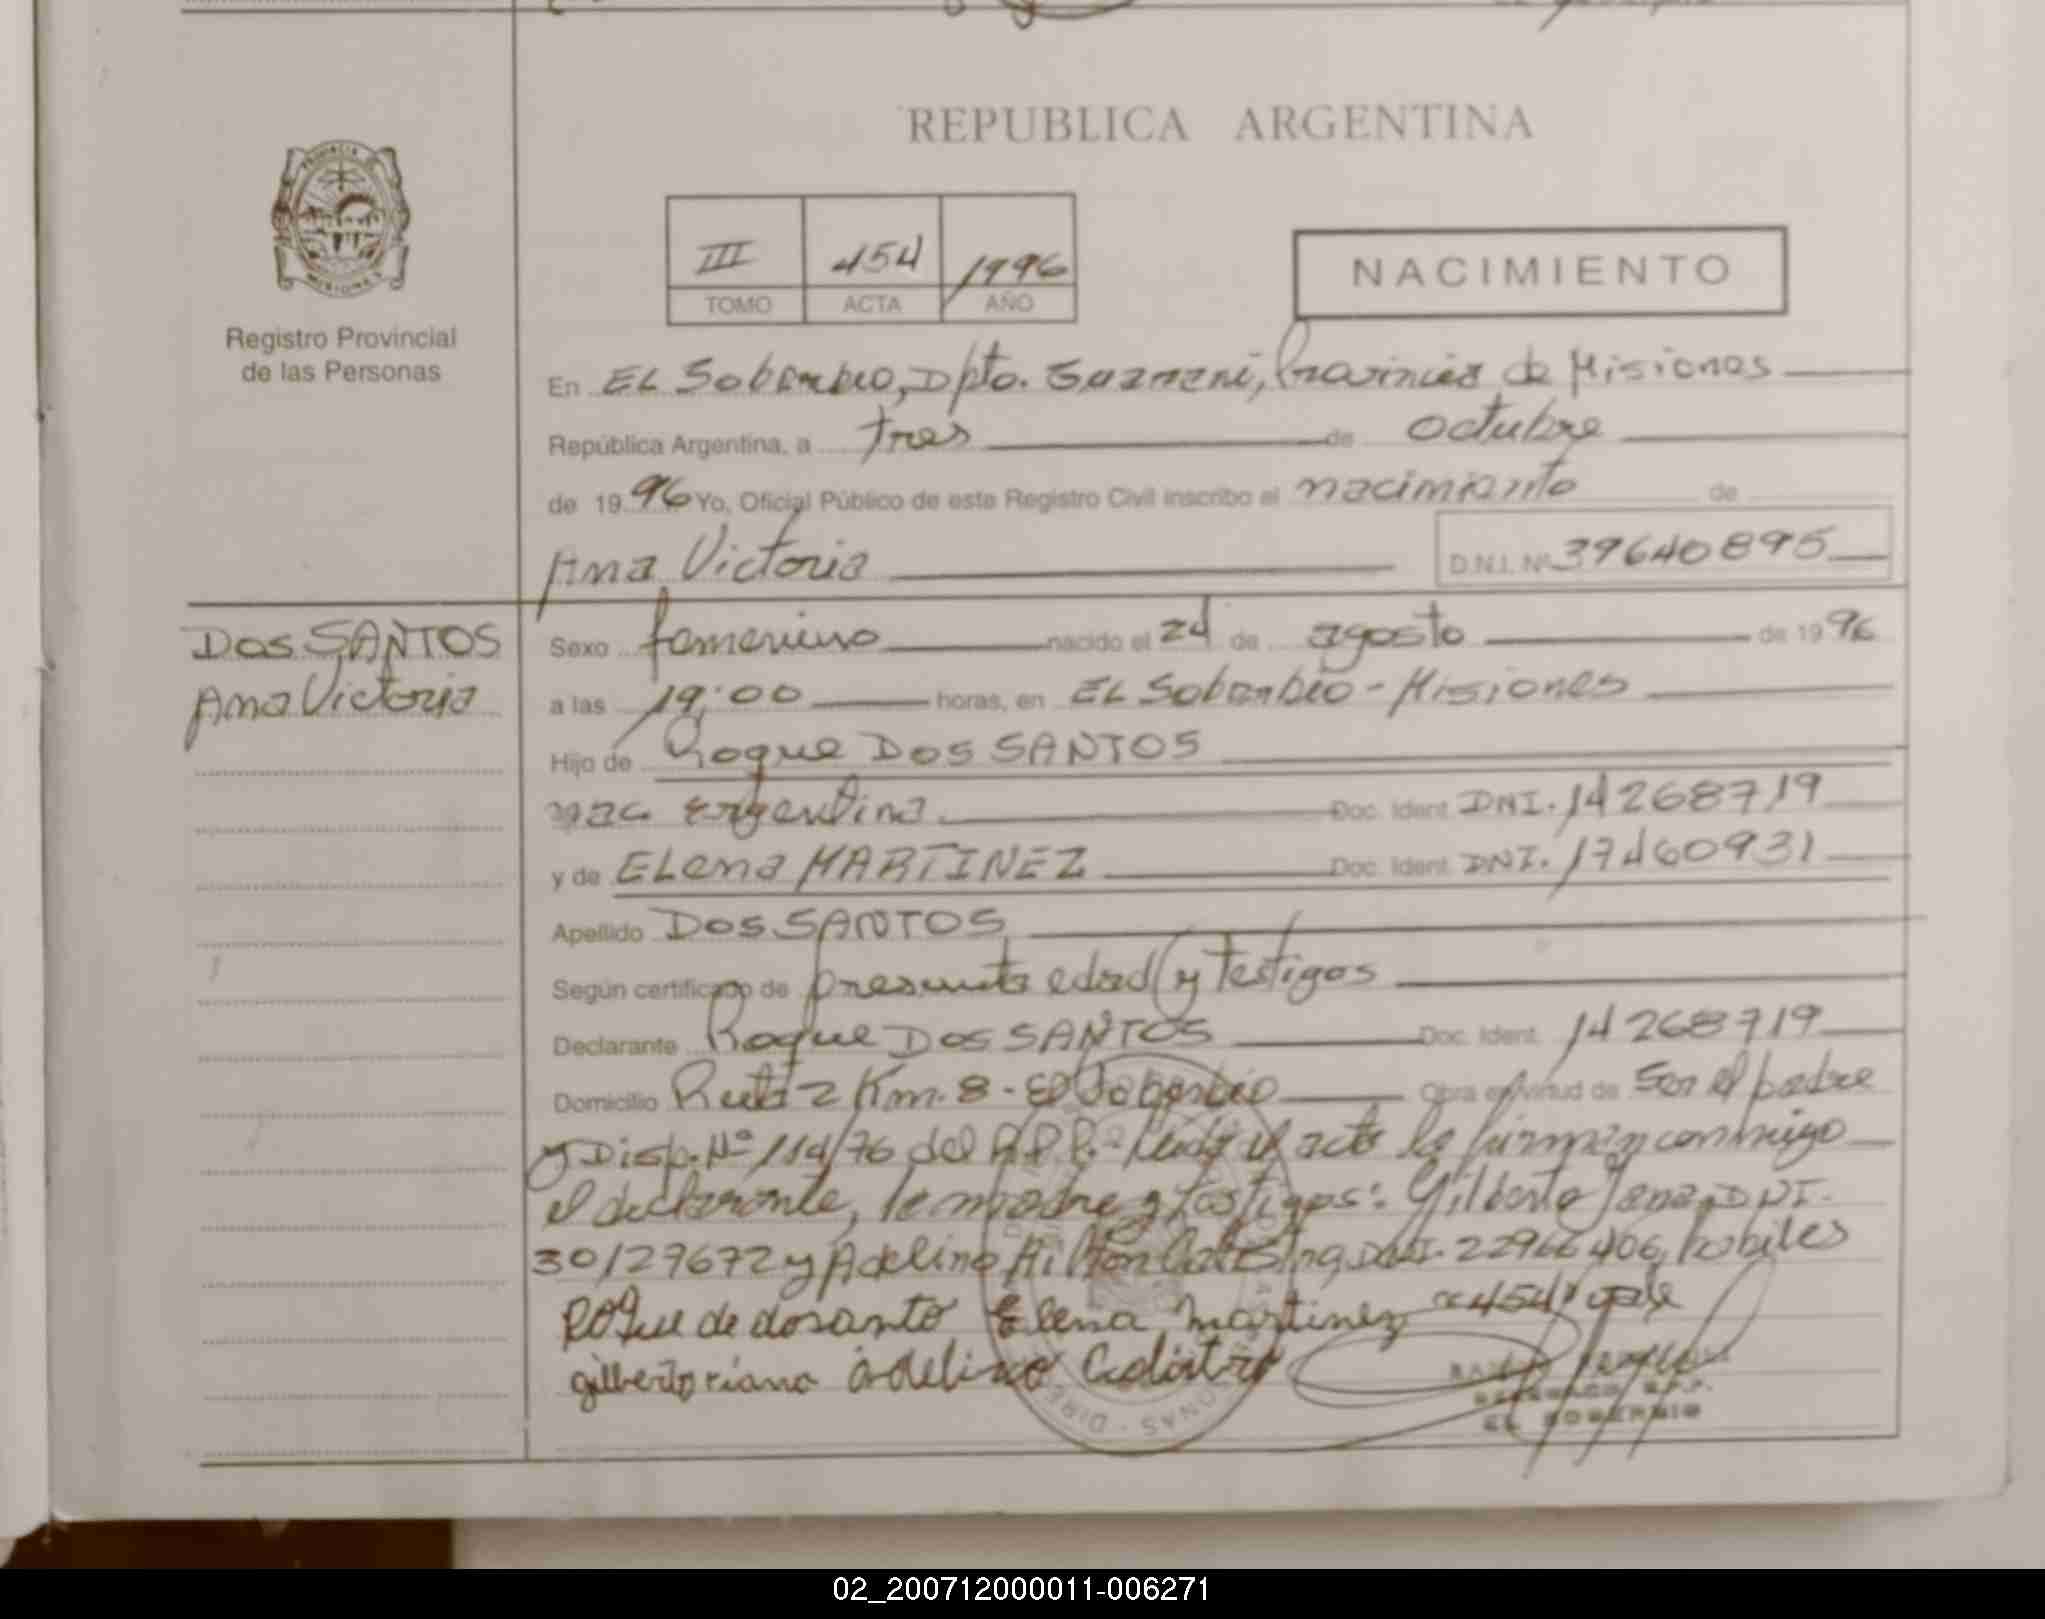 REPUBLICA ARGENTINA
III 454 1996
TOMO ACTA AÑO
NACIMIENTO
PROVINCIA DE
MISIONES
Registro Provincial
de las Personas
En EL Soberbio, Dpto. Guarani, Provincia de Misiones
República Argentina, a tres de octubre
de 1996 Yo, Oficial Público de este Registro Civil inscribo el nacimiento de
Ana Victoria D.N.I. Nº 39640895
DOS SANTOS
Ana Victoria
Sexo femenino nacido el 24 de agosto de 1996
a las 19:00 horas, en EL Soberbio - Misiones
Hijo de Roque DOS SANTOS
nac. argentina Doc. Ident. DNI. 14268719
y de ELena MARTINEZ Doc. Ident. DNI. 17460931
Apellido DOS SANTOS
Según certificado de presunta edad y Testigos
Declarante Roque DOS SANTOS Doc. Ident. 14268719
Domicilio Ruta 2 Km. 8 - El Soberbio Obra en virtud de Ser el padre
y Disp. Nº 114/76 del R.P.P. - Leida el acta la firman conmigo
el declarante, la madre y testigos: Gilberto DNI.
30127672 y Adelino DNI. 22966406, habiles
Roque de dosanto Elena martinez "454" vale
gilberto adelino
EL SOBERBIO
02_200712000011-006271